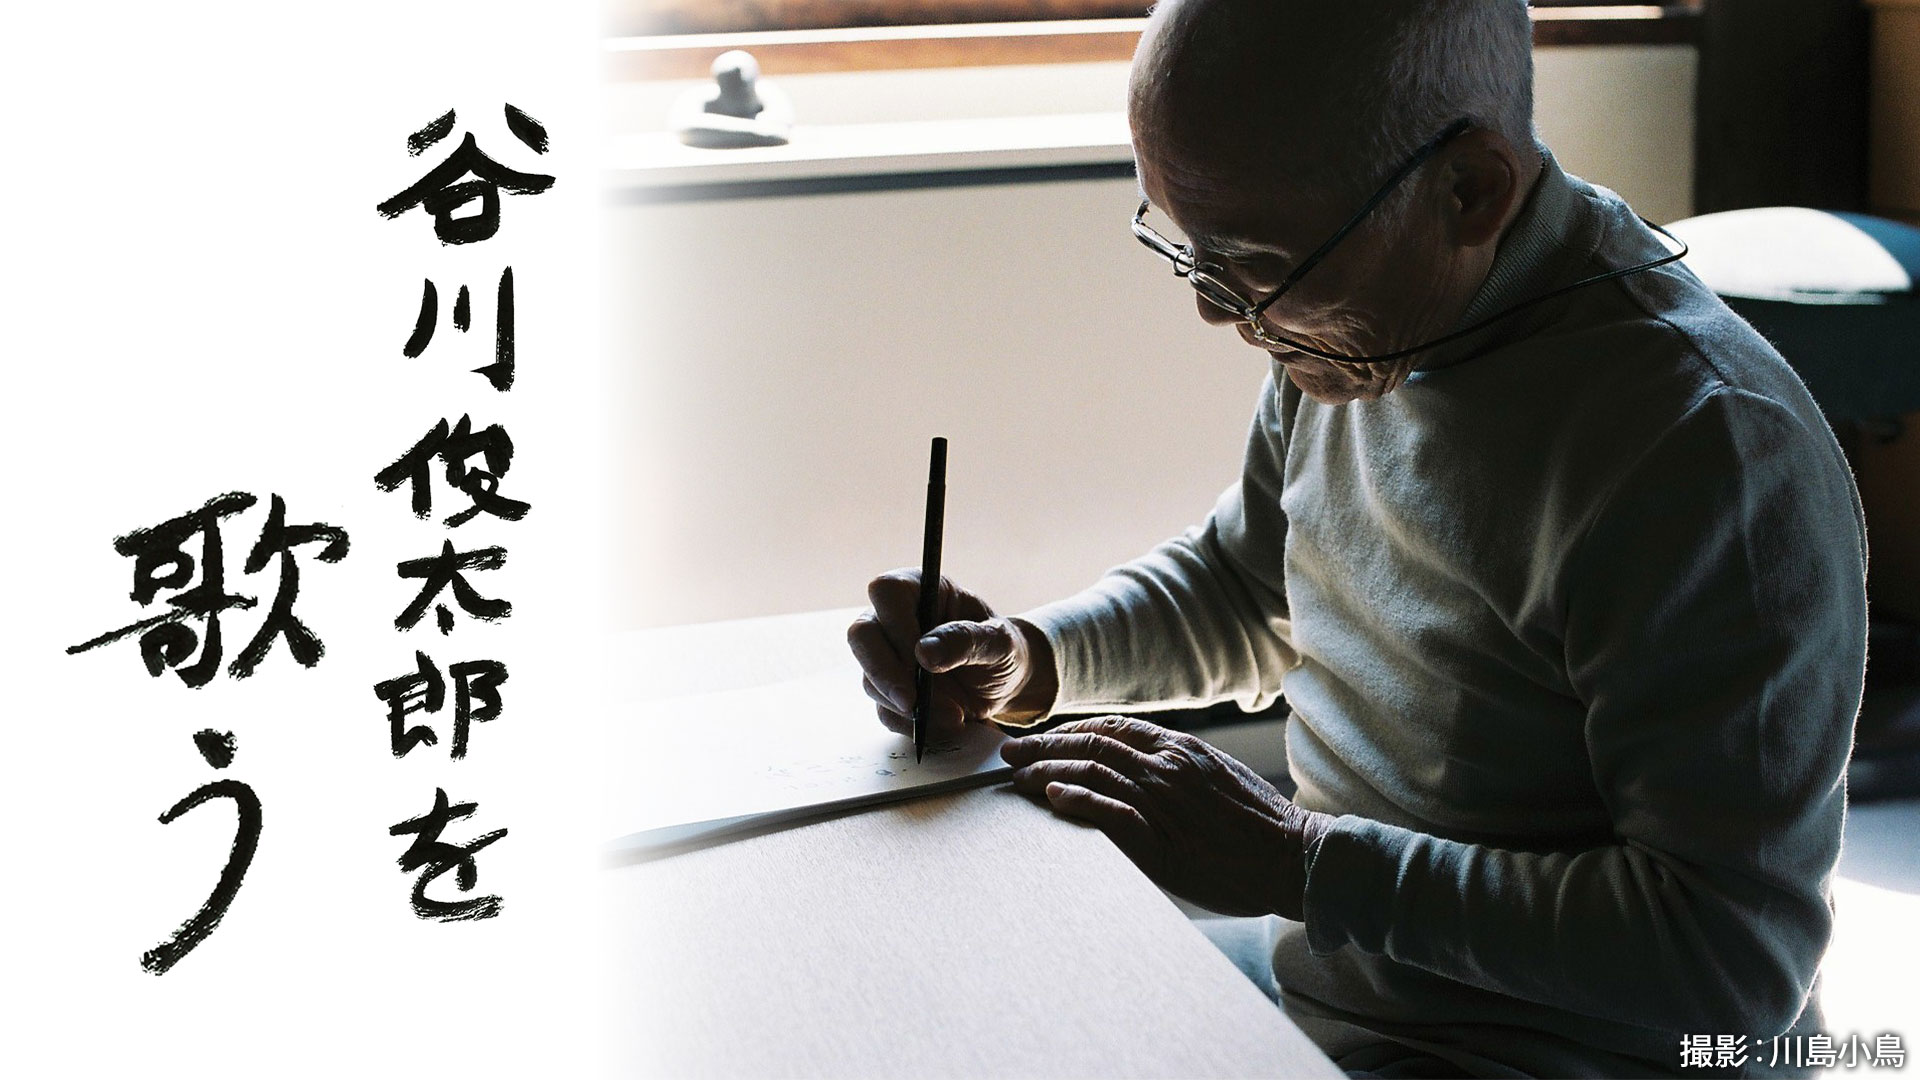 谷川俊太郎を
歌う
撮影：川島小鳥